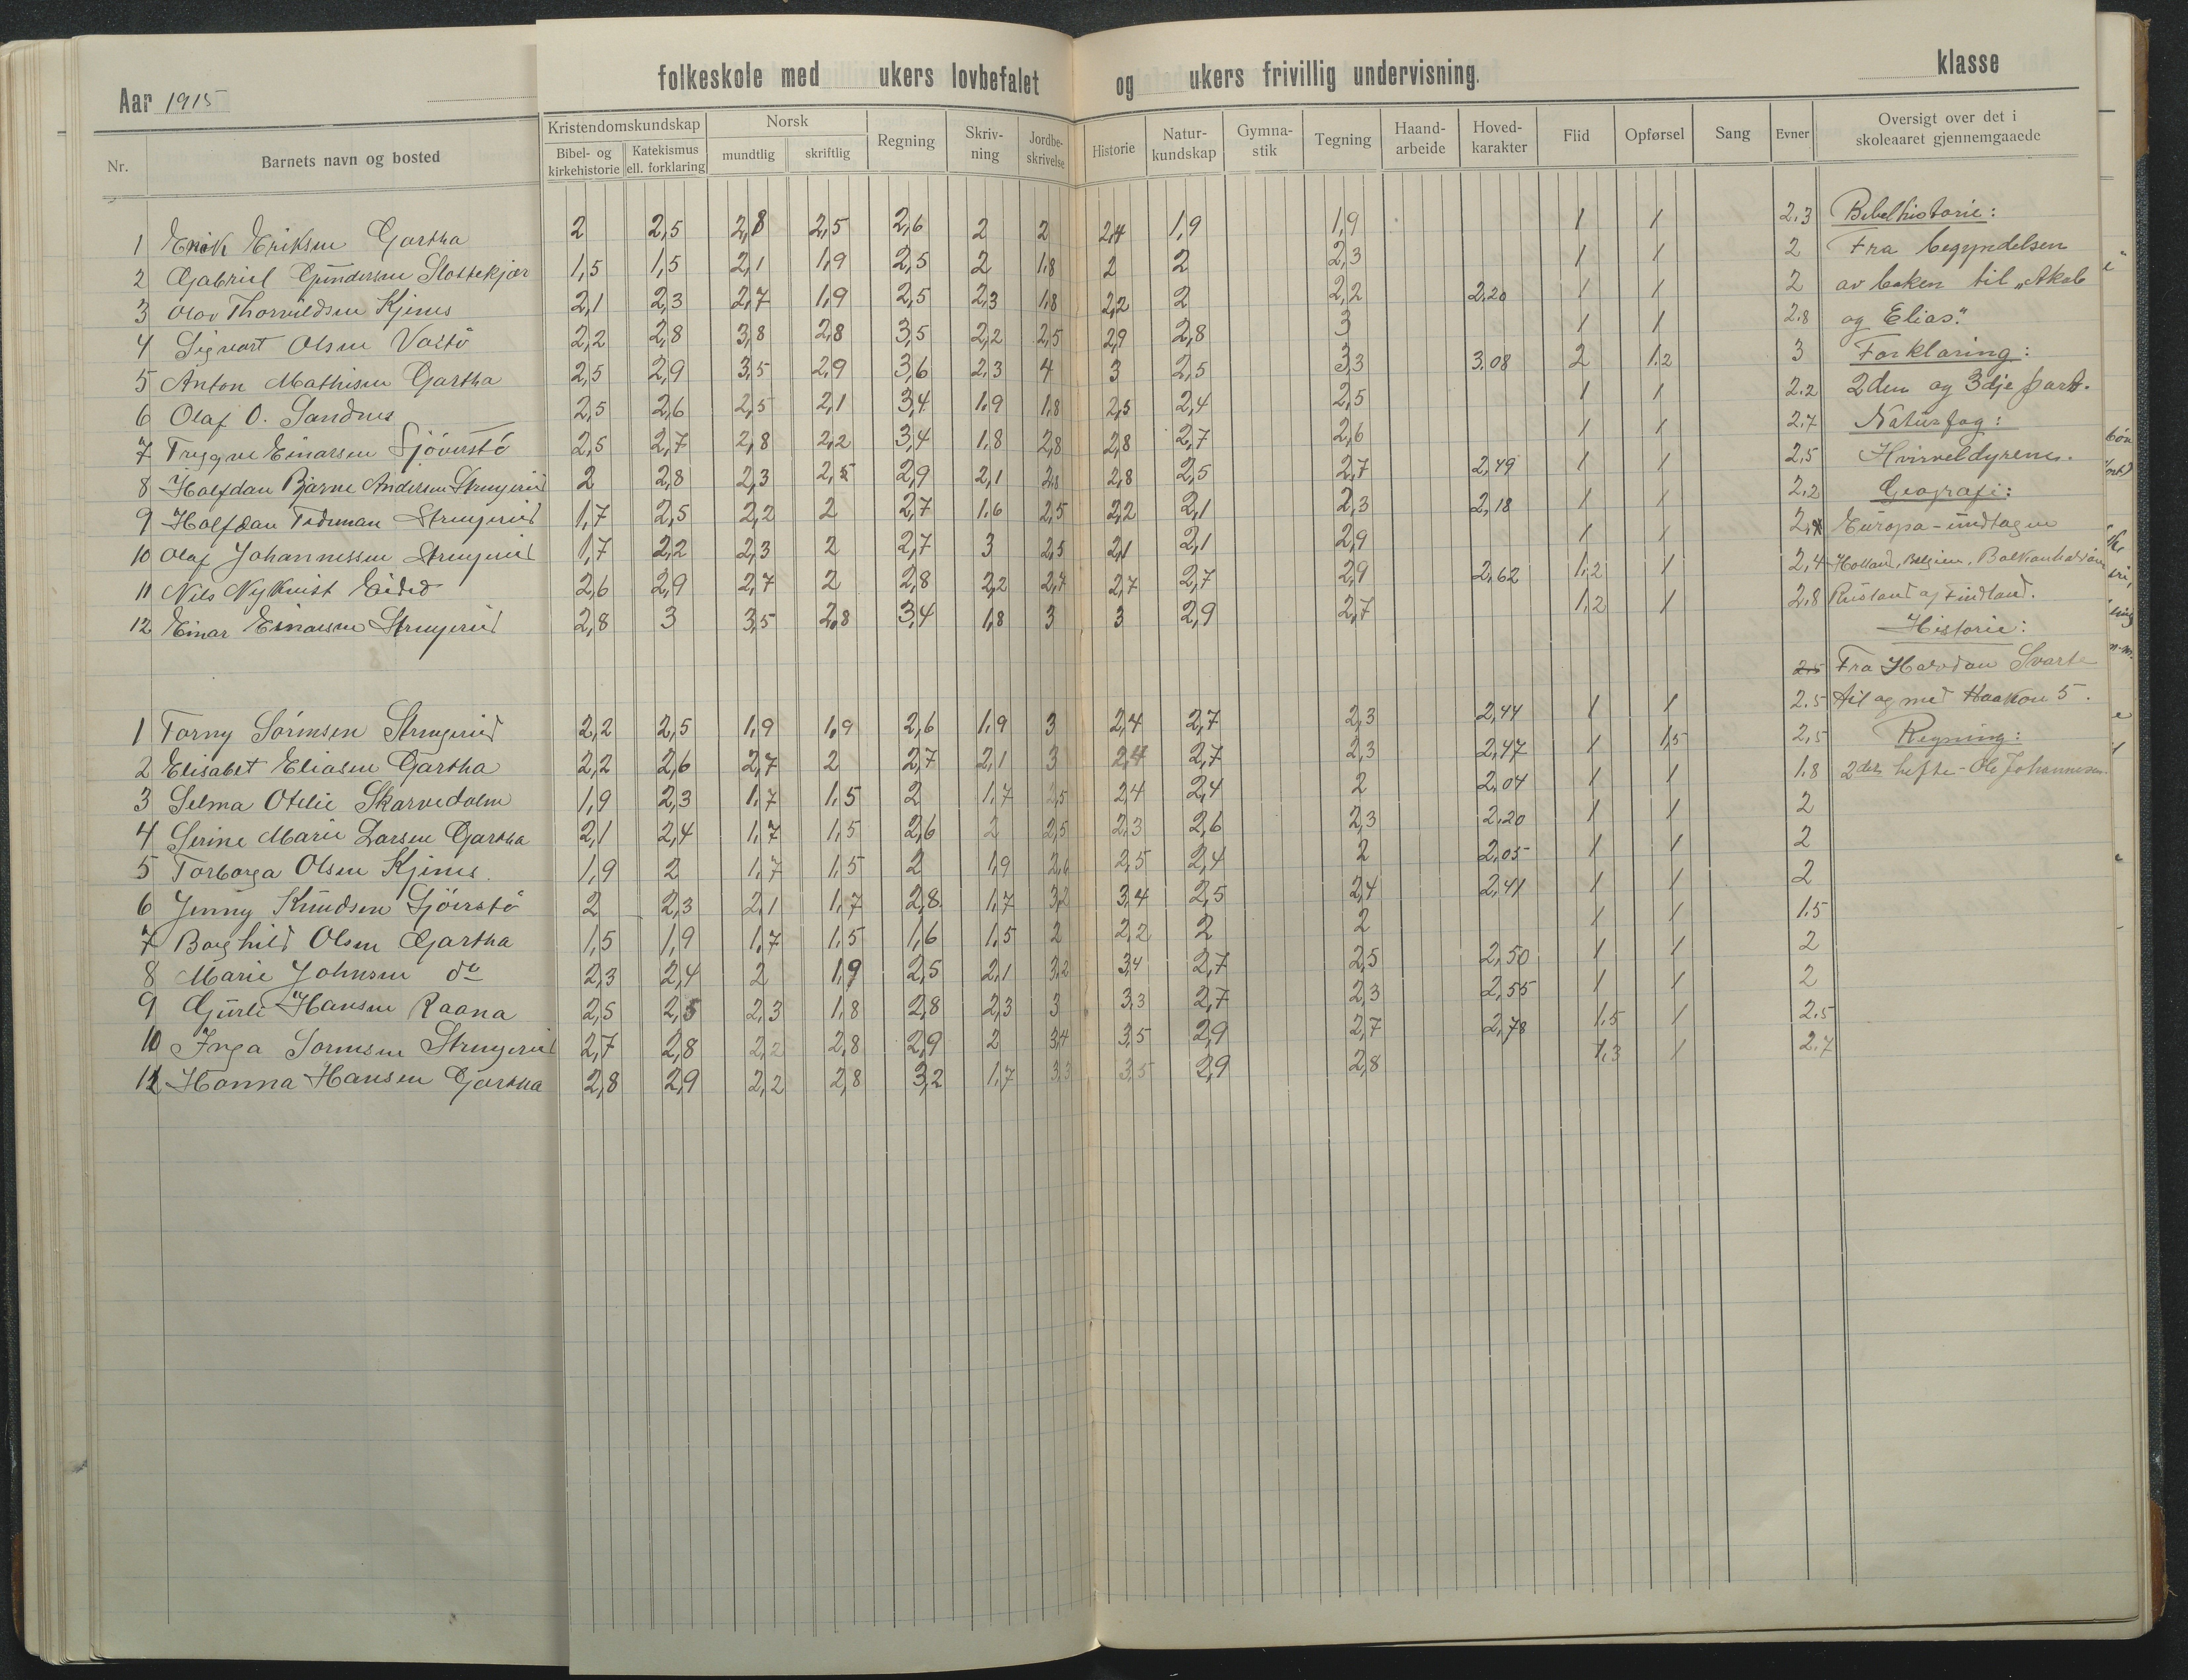 Aar 1915
folkeskole med ukers lovbefalet og ukers frivillig undervisning. klasse
Nr. Barnets navn og bosted Kristendomskundskap Bibel- og kirkehistorie Katekismus ell. forklaring Norsk mundtlig skriftlig Regning Skriv-ning Jordbe-skrivelse Historie Natur-kundskap Gymna-stik Tegning Haand-arbeide Hoved-karakter Flid Opførsel Sang Evner Oversigt over det i skoleaaret gjennemgaaede
1 Erik Eriksen Gartha 2 2,5 2,8 2,5 2,6 2 2 2,4 1,9 1,9 1 1 2.3 Bibelhistorie:
2 Gabriel Gundersen Slottekjær 1,5 1,5 2,1 1,9 2,5 2 1,8 2 2 2,3 1 1 2 Fra begyndelsen
3 Olav Thorvildsen Kjenes 2,1 2,3 2,7 1,9 2,5 2,3 1,8 2,2 2 2,2 2,20 1 1 2 av boken til „Akab
4 Sigvart Olsen Vastö 2,2 2,8 3,8 2,8 3,5 2,2 2,5 2,9 2,8 3 1 1 2.8 og Elias."
5 Anton Mathisen Gartha 2,5 2,9 3,5 2,9 3,6 2,3 4 3 2,5 3,3 3,08 2 1,2 3 Forklaring:
6 Olaf O. Sandnes 2,5 2,6 2,5 2,1 3,4 1,9 1,8 2,5 2,4 2,5 1 1 2.2 2den og 3dje part.
7 Trygve Einarsen Sjöverstö 2,5 2,7 2,8 2,2 3,4 1,8 2,8 2,8 2,7 2,6 1 1 2.7 Naturfag:
8 Halfdan Bjarne Andersen Strengerud 2 2,8 2,3 2,5 2,9 2,1 2,8 2,5 2,7 2,49 1 1 2,5 Hvirveldyrene.
9 Halfdan Strengerud 1,7 2,5 2,2 2 2,7 1,6 2,5 2,2 2,1 2,3 2,18 1 1 2.2 Geografi:
10 Olaf Johannessen Strengerud 1,7 2,2 2,3 2 2,7 3 2,5 2,1 2,1 2,9 1 1 Europa - undtagen
11 Nils Nykvist Eided 2,6 2,9 2,7 2 2,8 2,2 2,7 2,7 2,9 2,62 1,2 1 2,4 Holland, Belgien, Balkanhalvöen
12 Einar Einarsen Strengerud 2,8 3 3,5 2,8 3,4 1,8 3 3 2,9 2,7 1,2 1 2,8 Rusland og Findland.
Historie:
2.5 Fra Halvdan Svarte
1 Torny Sörensen Strengerud 2,2 2,5 1,9 1,9 2,6 1,9 3 2,4 2,7 2,3 2,44 1 1 2.5 til og med Haakon 5.
2 Elisabet Eliasen Gartha 2,2 2,6 2,7 2 2,7 2,1 3 2,4 2,7 2,3 2,47 1 1,5 2,5 Regning:
3 Selma Otelie Skarvedalen 1,9 2,3 1,7 1,5 2 1,7 2,5 2,4 2,4 2 2,04 1 1 1.8 2det hefte - Ole Johannesen
4 Serine Marie Larsen Gartha 2,1 2,4 1,7 1,5 2,6 2 2,5 2,3 2,6 2,3 2,20 1 1 2
5 Torborga Olsen Kjenes. 1,9 2 1,7 1,5 2 1,9 2,6 2,5 2,4 2 2,05 1 1 2
6 Jenny Knudsen Sjöverstö 2 2,3 2,1 1,7 2,8 1,7 3,2 3,4 2,5 2,4 2,41 1 1 2
7 Borghild Olsen Gartha 1,5 1,9 1,7 1,5 1,6 1,5 2 2,2 2 2 1 1 1.5
8 Marie Johnsen do 2,3 2,4 2 1,9 2,5 2,1 3,2 3,4 2,7 2,5 2,50 1 1 2
9 Gurli Hansen Raana 2,5 2,5 2,3 1,8 2,8 2,3 3 3,3 2,7 2,3 2,55 1 1 2
10 Inga Sörensen Strengerud 2,7 2,8 2,2 2,8 2,9 2 3,4 3,5 2,9 2,7 2,78 1.5 1 2.5
11 Hanna Hansen Gartha 2,8 2,9 2,2 2,8 3,2 1,7 3,3 3,5 2,9 2,8 1,3 1 2.7